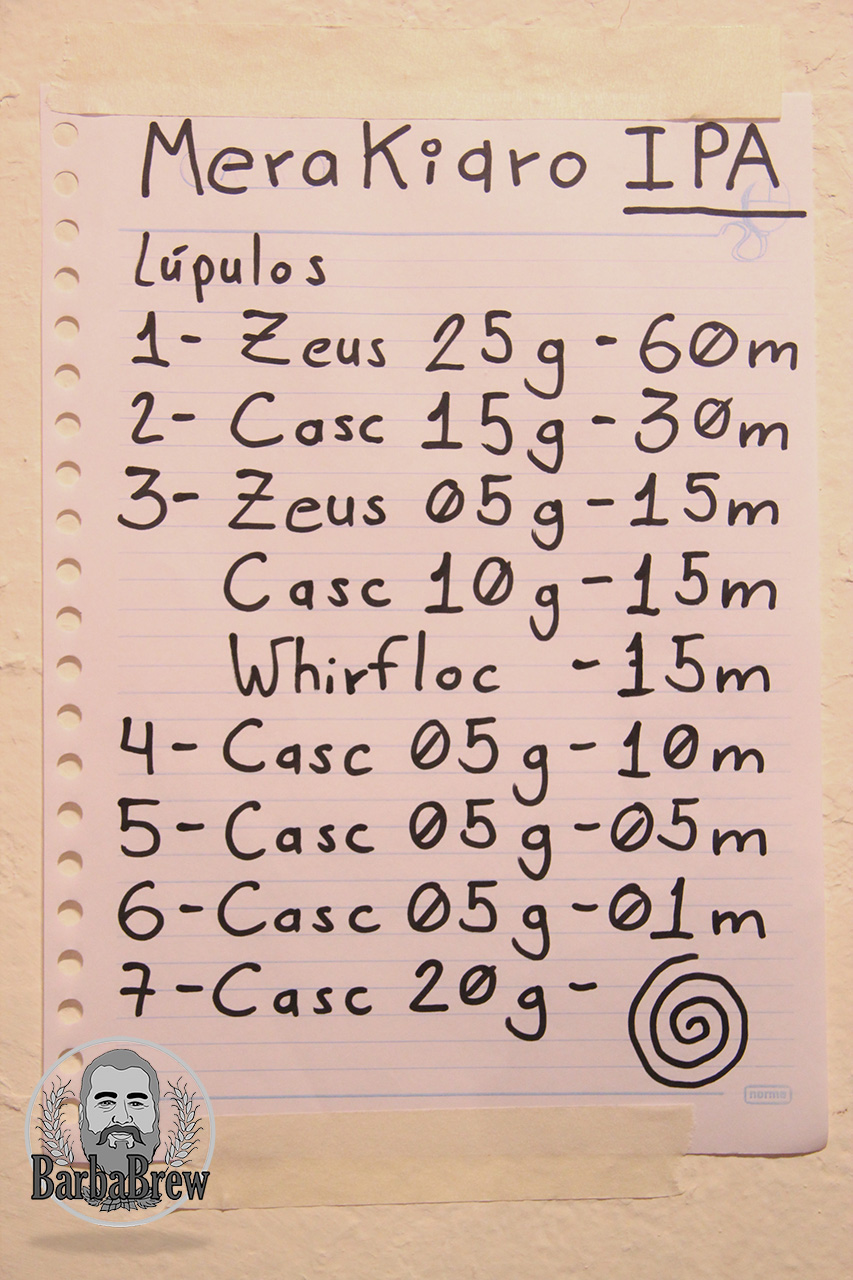 Merakiaro IPA
Lúpulos
1- Zeus 25g - 60m
2- Casc 15g - 30m
3- Zeus 05g - 15m
Casc 10g - 15m
Whirfloc - 15m
4- Casc 05g - 10m
5- Casc 05g - 05m
6- Casc 05g - 01m
7- Casc 20g -
norma
BarbaBrew